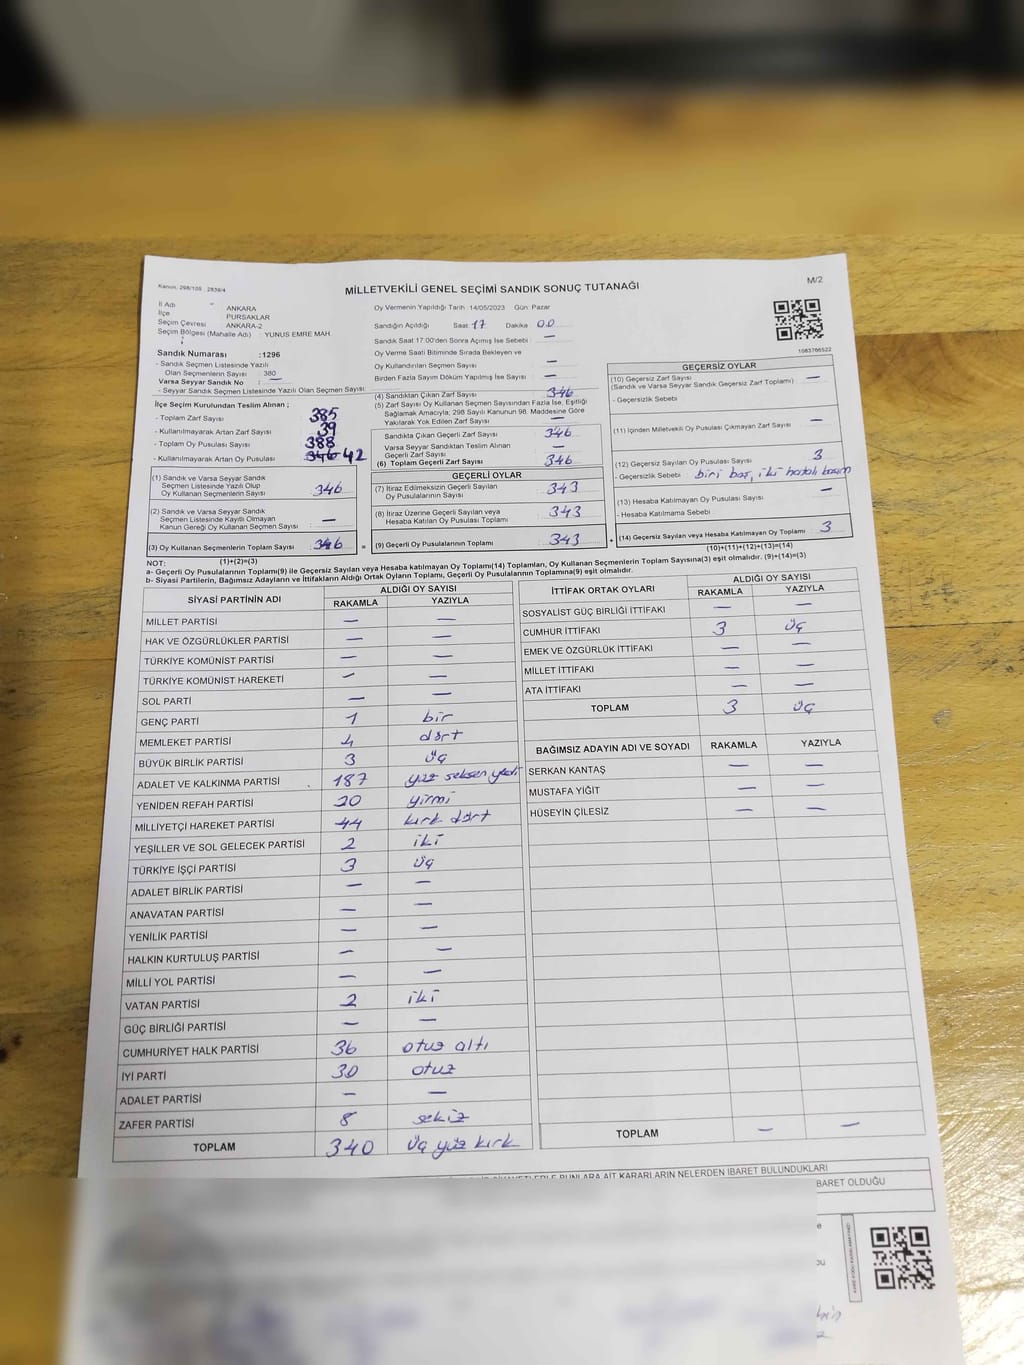 Kanun, 298/105 , 2839/4
MİLLETVEKİLİ GENEL SEÇİMİ SANDIK SONUÇ TUTANAĞI
M/2
İl Adı ANKARA
İlçe PURSAKLAR
Seçim Çevresi ANKARA-2
Seçim Bölgesi (Mahalle Adı) : YUNUS EMRE MAH.
Sandık Numarası :1296
- Sandık Seçmen Listesinde Yazılı
Olan Seçmenlerin Sayısı 380
Varsa Seyyar Sandık No : —
- Seyyar Sandık Seçmen Listesinde Yazılı Olan Seçmen Sayısı:
İlçe Seçim Kurulundan Teslim Alınan ;
- Toplam Zarf Sayısı 385
- Kullanılmayarak Artan Zarf Sayısı 39
- Toplam Oy Pusulası Sayısı 388
- Kullanılmayarak Artan Oy Pusulası 346 42
(1) Sandık ve Varsa Seyyar Sandık
Seçmen Listesinde Yazılı Olup
Oy Kullanan Seçmenlerin Sayısı 346
(2) Sandık ve Varsa Seyyar Sandık
Seçmen Listesinde Kayıtlı Olmayan
Kanun Gereği Oy Kullanan Seçmen Sayısı —
(3) Oy Kullanan Seçmenlerin Toplam Sayısı 346 =
(1)+(2)=(3)
Oy Vermenin Yapıldığı Tarih :14/05/2023 Gün: Pazar
Sandığın Açıldığı Saat: 17 Dakika 00
Sandık Saat 17.00'den Sonra Açımış İse Sebebi : —
Oy Verme Saati Bitiminde Sırada Bekleyen ve
Oy Kullandırılan Seçmen Sayısı —
Birden Fazla Sayım Döküm Yapılmış İse Sayısı —
(4) Sandıktan Çıkan Zarf Sayısı 346
(5) Zarf Sayısı Oy Kullanan Seçmen Sayısından Fazla İse, Eşitliği
Sağlamak Amacıyla; 298 Sayılı Kanunun 98. Maddesine Göre
Yakılarak Yok Edilen Zarf Sayısı —
Sandıkta Çıkan Geçerli Zarf Sayısı 346
Varsa Seyyar Sandıktan Teslim Alınan
Geçerli Zarf Sayısı —
(6) Toplam Geçerli Zarf Sayısı 346
GEÇERLİ OYLAR
(7) İtiraz Edilmeksizin Geçerli Sayılan
Oy Pusulalarının Sayısı 343
(8) İtiraz Üzerine Geçerli Sayılan veya
Hesaba Katılan Oy Pusulası Toplamı 343
(9) Geçerli Oy Pusulalarının Toplamı 343 +
1083766522
GEÇERSİZ OYLAR
(10) Geçersiz Zarf Sayısı —
(Sandık ve Varsa Seyyar Sandık Geçersiz Zarf Toplamı)
- Geçersizlik Sebebi
(11) İçinden Milletvekili Oy Pusulası Çıkmayan Zarf Sayısı —
(12) Geçersiz Sayılan Oy Pusulası Sayısı 3
- Geçersizlik Sebebi : biri boş, iki hatalı basım
(13) Hesaba Katılmayan Oy Pusulası Sayısı —
- Hesaba Katılmama Sebebi
(14) Geçersiz Sayılan veya Hesaba Katılmayan Oy Toplamı 3
(10)+(11)+(12)+(13)=(14)
NOT:
a- Geçerli Oy Pusulalarının Toplamı(9) ile Geçersiz Sayılan veya Hesaba katılmayan Oy Toplamı(14) Toplamları, Oy Kullanan Seçmenlerin Toplam Sayısına(3) eşit olmalıdır. (9)+(14)=(3)
b- Siyasi Partilerin, Bağımsız Adayların ve İttifakların Aldığı Ortak Oyların Toplamı, Geçerli Oy Pusulalarının Toplamına(9) eşit olmalıdır.
SİYASİ PARTİNİN ADI ALDIĞI OY SAYISI
RAKAMLA YAZIYLA
MİLLET PARTİSİ — —
HAK VE ÖZGÜRLÜKLER PARTİSİ — —
TÜRKİYE KOMÜNİST PARTİSİ — —
TÜRKİYE KOMÜNİST HAREKETİ — —
SOL PARTİ — —
GENÇ PARTİ 1 bir
MEMLEKET PARTİSİ 4 dört
BÜYÜK BİRLİK PARTİSİ 3 üç
ADALET VE KALKINMA PARTİSİ 187 yüz seksen yedi
YENİDEN REFAH PARTİSİ 20 yirmi
MİLLİYETÇİ HAREKET PARTİSİ 44 kırk dört
YEŞİLLER VE SOL GELECEK PARTİSİ 2 iki
TÜRKİYE İŞÇİ PARTİSİ 3 üç
ADALET BİRLİK PARTİSİ — —
ANAVATAN PARTİSİ — —
YENİLİK PARTİSİ — —
HALKIN KURTULUŞ PARTİSİ — —
MİLLİ YOL PARTİSİ — —
VATAN PARTİSİ 2 iki
GÜÇ BİRLİĞİ PARTİSİ — —
CUMHURİYET HALK PARTİSİ 36 otuz altı
İYİ PARTİ 30 otuz
ADALET PARTİSİ — —
ZAFER PARTİSİ 8 sekiz
TOPLAM 340 üç yüz kırk
İTTİFAK ORTAK OYLARI ALDIĞI OY SAYISI
RAKAMLA YAZIYLA
SOSYALİST GÜÇ BİRLİĞİ İTTİFAKI — —
CUMHUR İTTİFAKI 3 üç
EMEK VE ÖZGÜRLÜK İTTİFAKI — —
MİLLET İTTİFAKI — —
ATA İTTİFAKI — —
TOPLAM 3 üç
BAĞIMSIZ ADAYIN ADI VE SOYADI RAKAMLA YAZIYLA
SERKAN KANTAŞ — —
MUSTAFA YİĞİT — —
HÜSEYİN ÇİLESİZ — —
TOPLAM — —
BUNLARA AİT KARARLARIN NELERDEN İBARET BULUNDUKLARI
BARET OLDUĞU